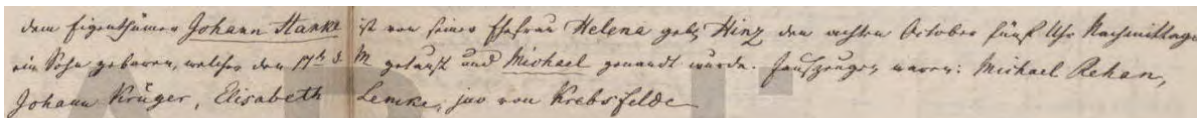 dem Eigenthümer Johann Stanke ist von seiner Ehefrau Helena geb. Hinz den achten October fünf Uhr Nachmittags
ein Sohn geboren, welcher den 17ten d. M getauft und Michael genandt wurde. Taufzeugen waren: Michael Rehan,
Johann Krüger, Elisabeth Lemke, von Krebsfelde